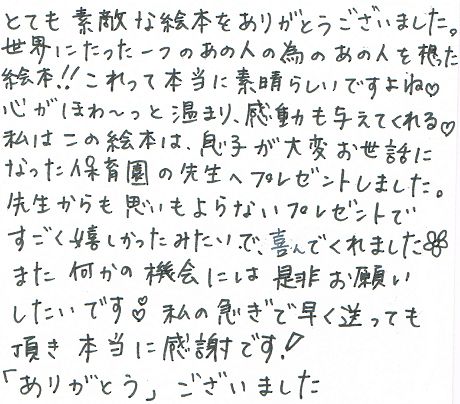 とても素敵な絵本をありがとうございました。
世界にたった一つのあの人の為のあの人を想った
絵本!! これって本当に素晴らしいですよね♡
心がほわ～っと温まり、感動も与えてくれる♡
私はこの絵本は、息子が大変お世話に
なった保育園の先生へプレゼントしました。
先生からも思いもよらないプレゼントで
すごく嬉しかったみたいで、喜んでくれました
また何かの機会には是非お願い
したいです♡ 私の急ぎで早く送っても
頂き本当に感謝です!
「ありがとう」ございました